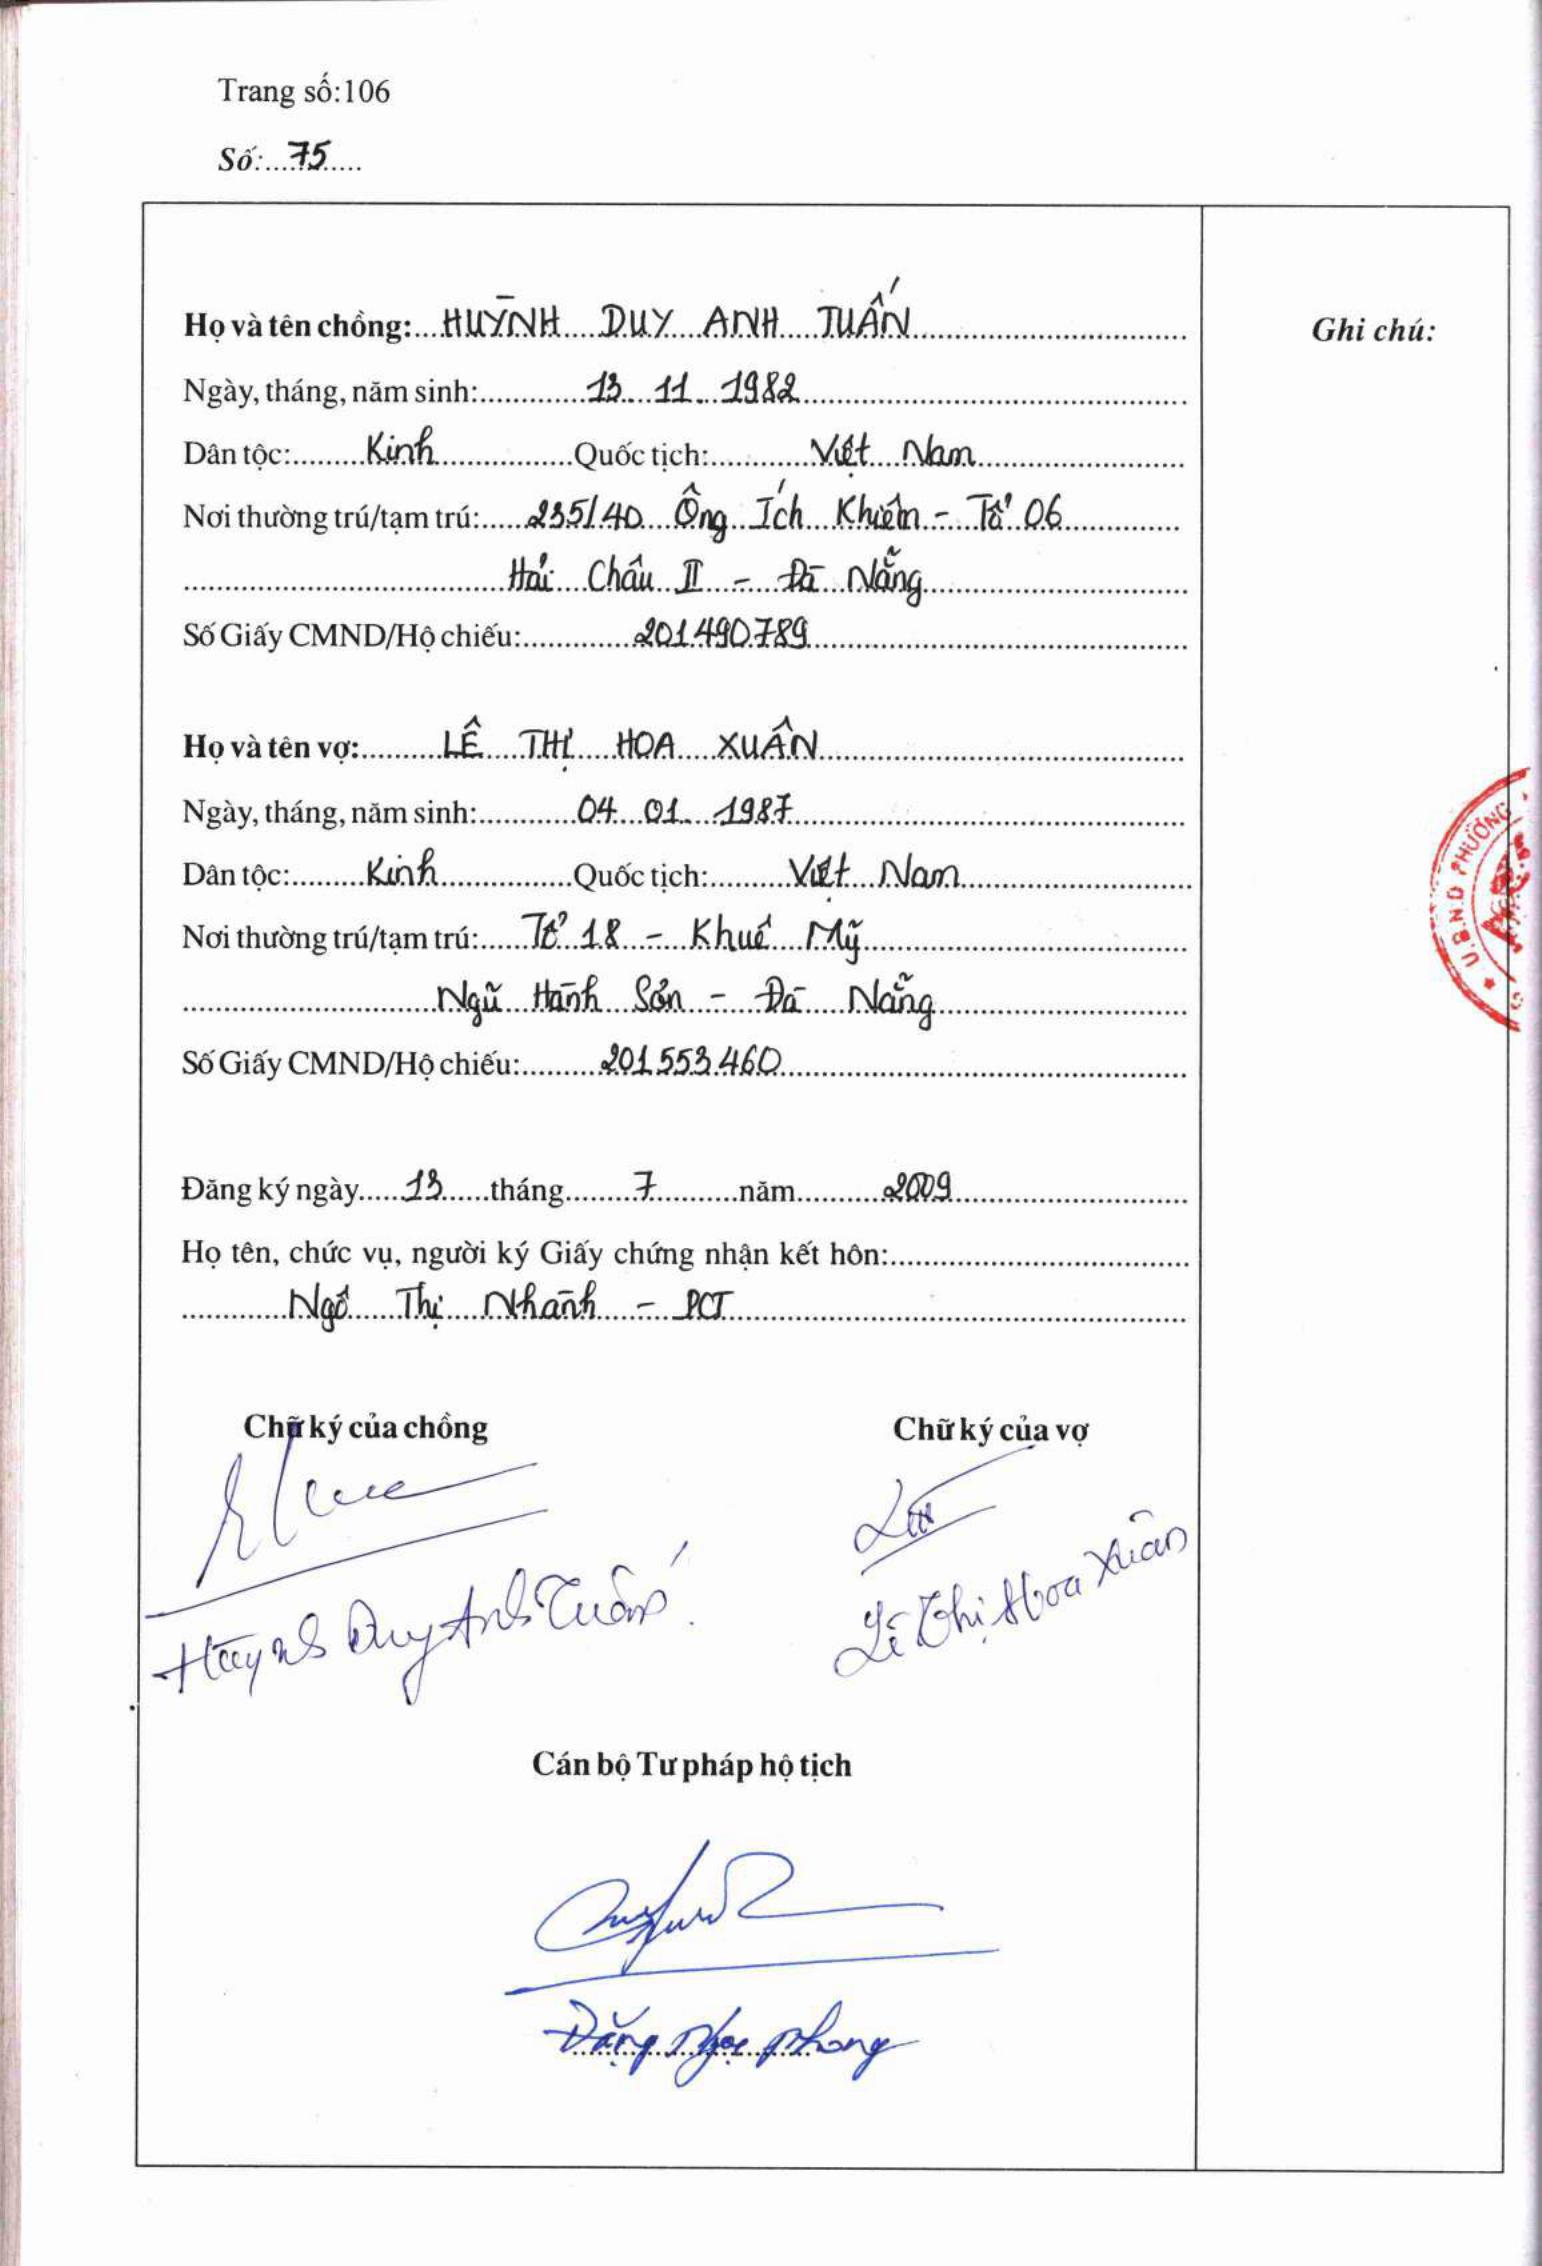 Trang số:106
Số: 75
Họ và tên chồng: HUỲNH DUY ANH TUẤN
Ghi chú:
Ngày, tháng, năm sinh: 13 11 1982
Dân tộc: Kinh Quốc tịch: Việt Nam
Nơi thường trú/tạm trú: 235/40 Ông Ích Khiêm - Tổ 06
Hải Châu II - Đà Nẵng
Số Giấy CMND/Hộ chiếu: 201490789
Họ và tên vợ: LÊ THỊ HOA XUÂN
Ngày, tháng, năm sinh: 04 01 1987
Dân tộc: Kinh Quốc tịch: Việt Nam
Nơi thường trú/tạm trú: Tổ 18 - Khuê Mỹ
Ngũ Hành Sơn - Đà Nẵng
Số Giấy CMND/Hộ chiếu: 201553460
U.B.N.D PHƯỜNG
Đăng ký ngày 13 tháng 7 năm 2009
Họ tên, chức vụ, người ký Giấy chứng nhận kết hôn:
Ngô Thị Nhành - PCT
Chữ ký của chồng Chữ ký của vợ
Huỳnh Duy Anh Tuấn
Lê Thị Hoa Xuân
Cán bộ Tư pháp hộ tịch
Đặng Ngọc Phong